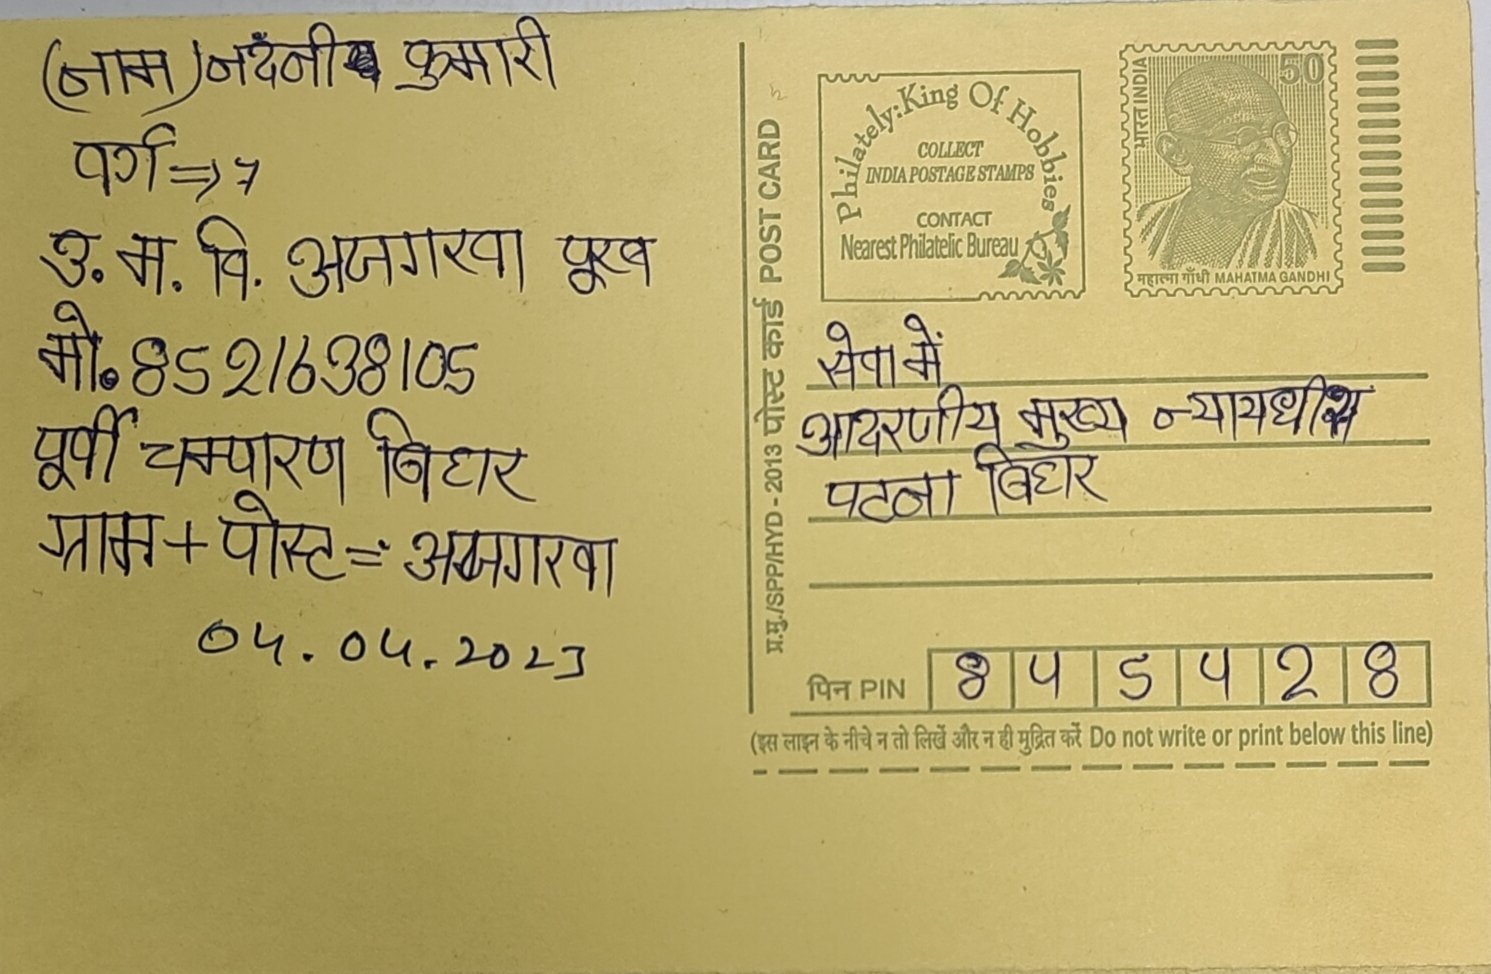 (नाम) नंदनी कुमारी
वर्ग => 7
उ. म. वि. अजगरवा पूरब
मो. 8521638105
पूर्वी चम्पारण बिहार
ग्राम + पोस्ट = अजगरवा
04.04.2023
प्र.मु./SPP/HYD - 2013 पोस्ट कार्ड POST CARD
Philately: King Of Hobbies
COLLECT
INDIA POSTAGE STAMPS
CONTACT
Nearest Philatelic Bureau
भारत INDIA
50
महात्मा गाँधी MAHATMA GANDHI
सेवा में
आदरणीय मुख्य न्यायधीश
पटना बिहार
पिन PIN 845428
(इस लाइन के नीचे न तो लिखें और न ही मुद्रित करें Do not write or print below this line)